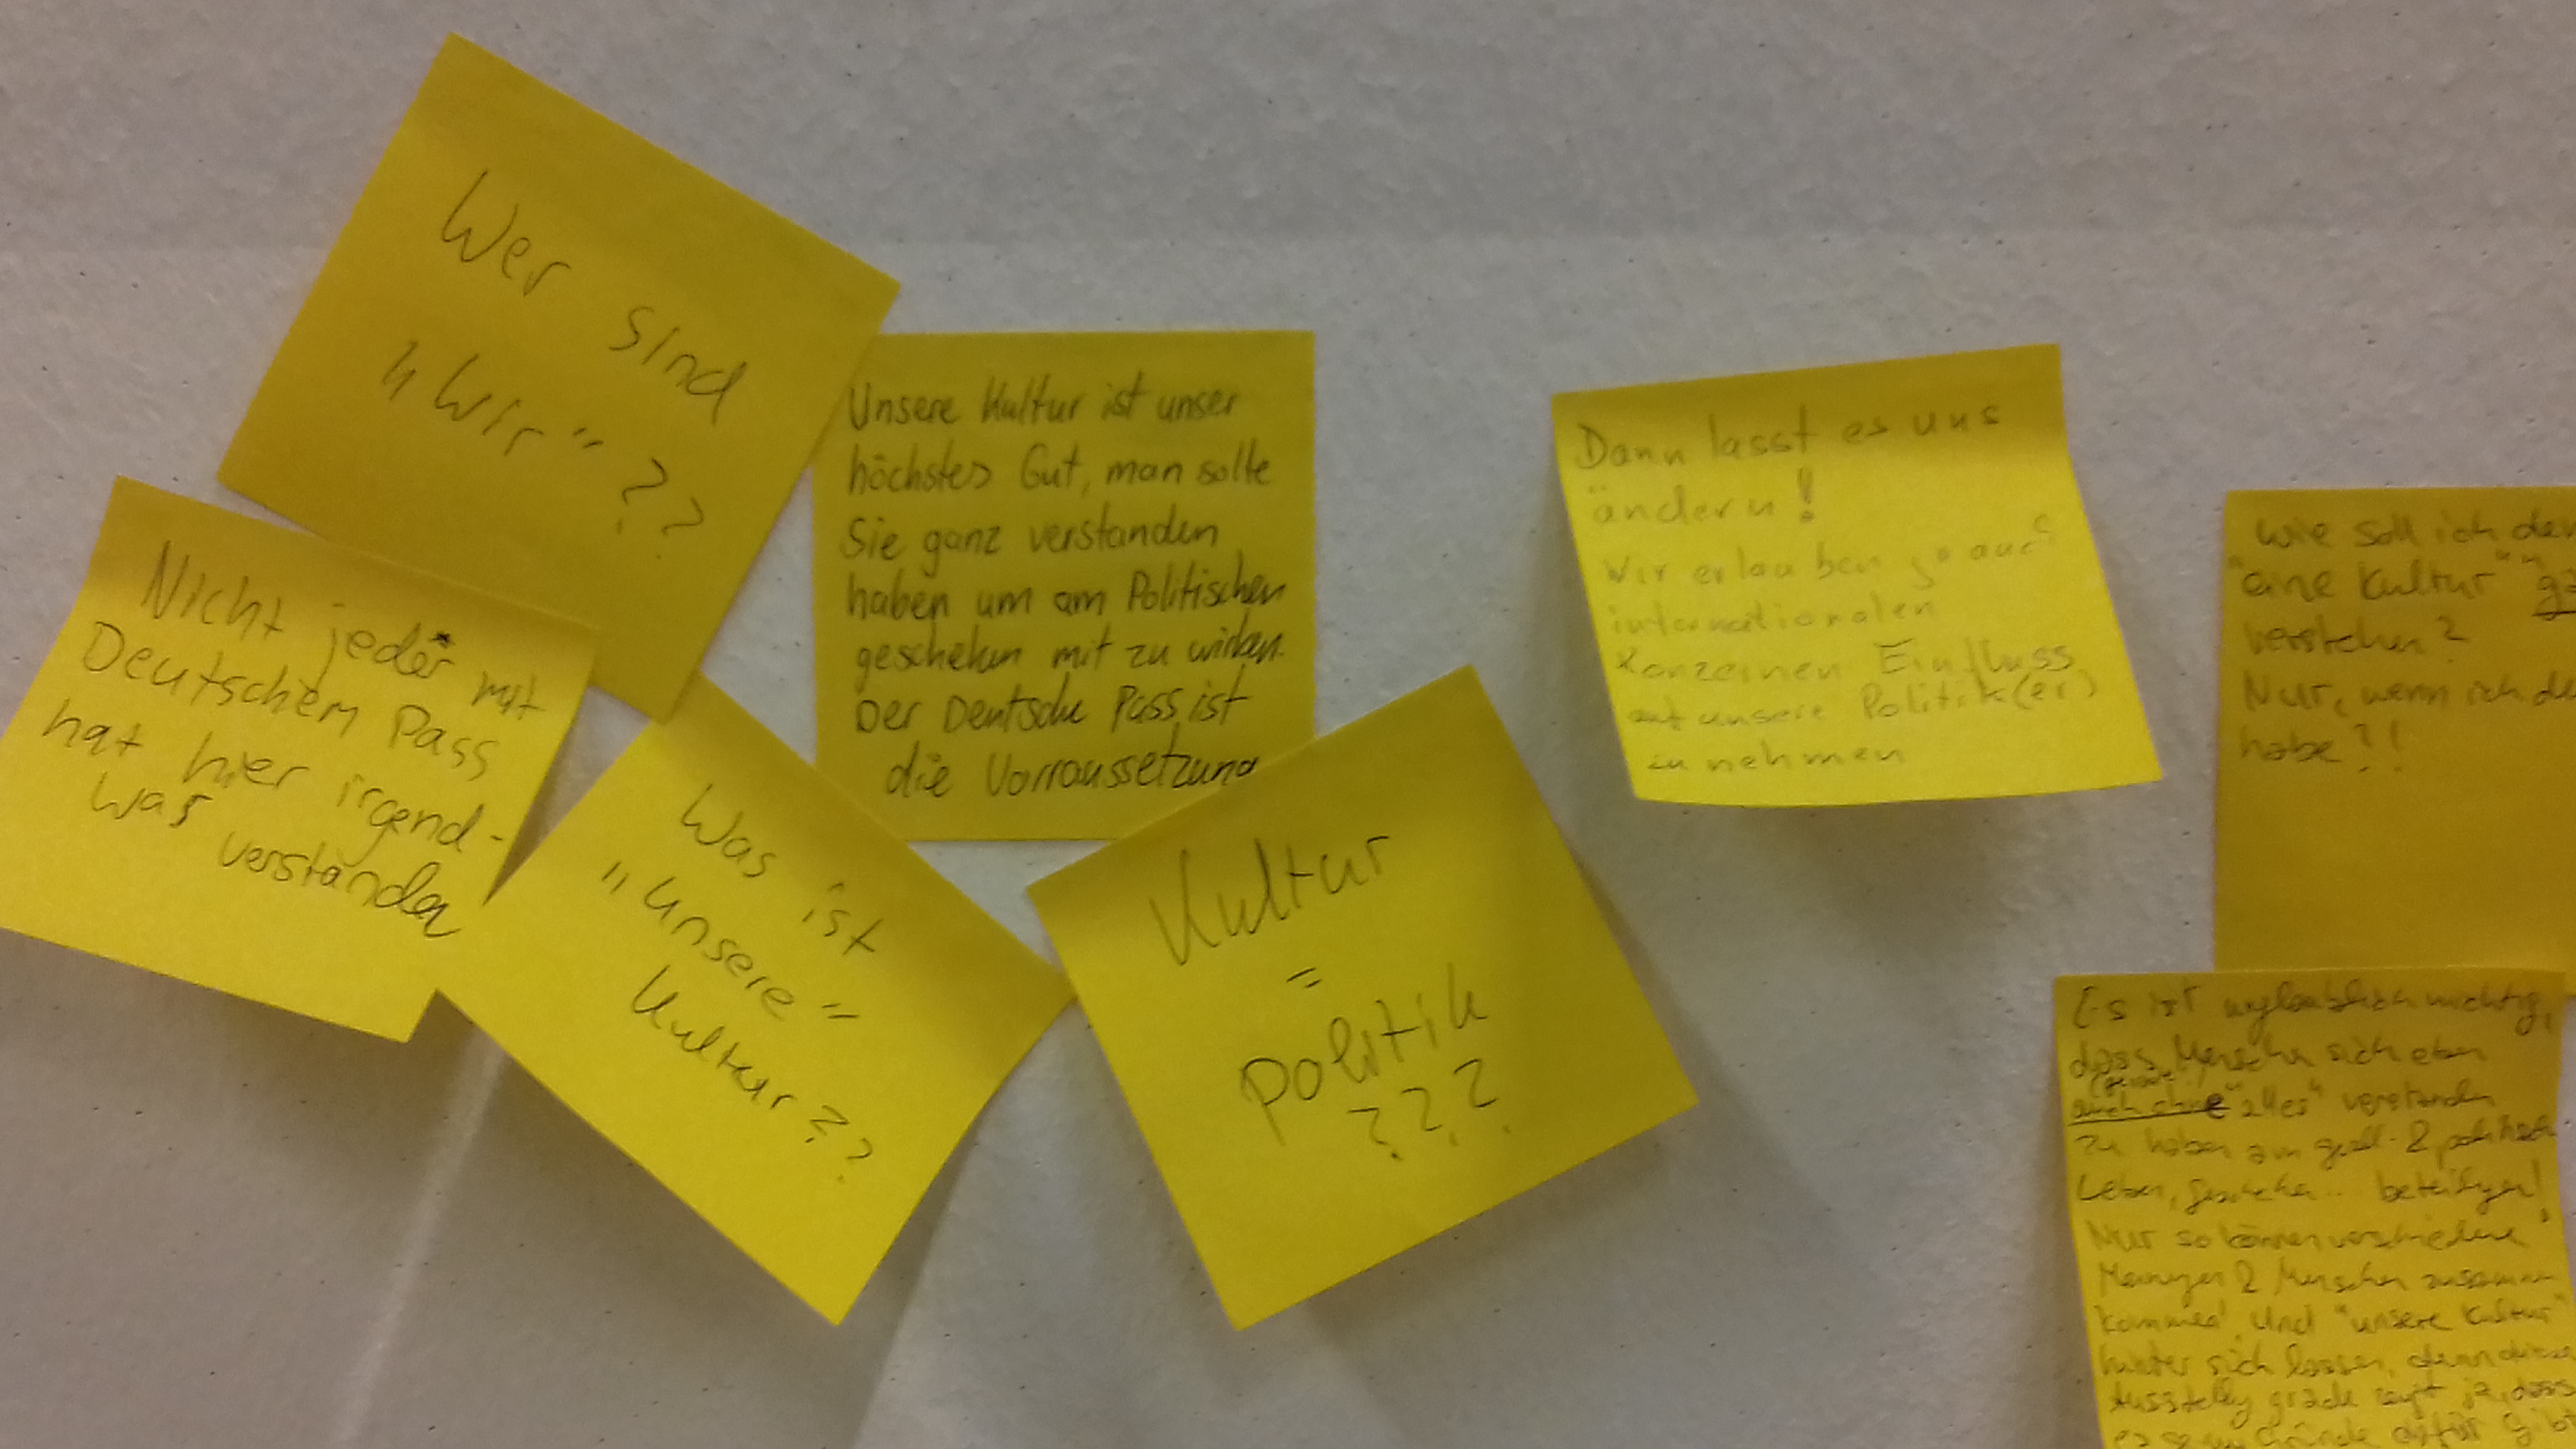 Wer sind
„Wir“??
Nicht jeder mit
Deutschem Pass
hat hier irgend-
was verstanden
Unsere Kultur ist unser
höchstes Gut, man sollte
Sie ganz verstanden
haben um am Politischen
geschehen mit zu wirken.
Der Deutsche Pass ist
die Vorraussetzung
Was ist
„unsere“
Kultur??
Kultur
=
Politik
???
Dann lasst es uns
ändern!
Wir erlauben ja auch
internationalen
Konzernen Einfluss
auf unsere Politik(er)
zu nehmen
Wie soll ich
"eine Kultur"
verstehen?
Nur, wenn ich
habe?!
Es ist unglaublich wichtig,
dass Menschen sich eben
auch ohne "alles" verstanden
zu haben am
Leben, beteiligen!
Nur so können verschiedene
Meinungen & Menschen zusammen
kommen! Und "unsere Kultur"
hinter sich lassen, denn
zeigt ja, dass